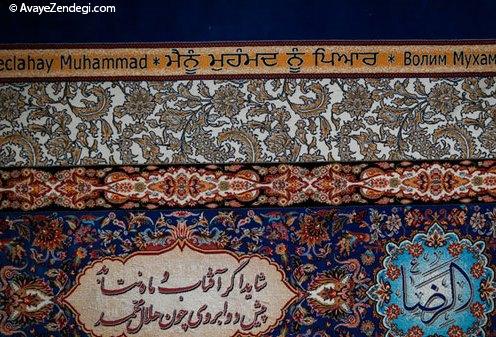 © AvayeZendegi.com
eclahay Muhammad * ਮੈਨੂੰ ਮੁਹੰਮਦ ਨੂੰ ਪਿਆਰ * Волим Мухам
شاید اگر آفتاب و ماه نتابد
پیش دو ابروی چون هلال محمد
الرضا